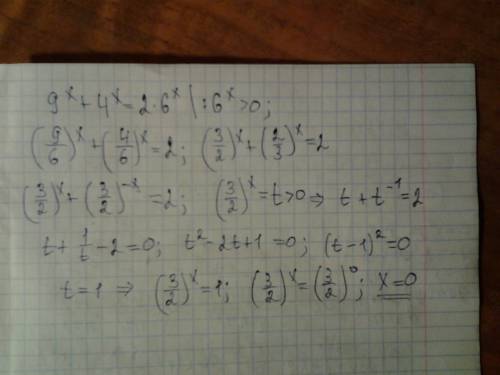 9^x + 4^x = 2·6^x | :6^x > 0;
(9/6)^x + (4/6)^x = 2; (3/2)^x + (2/3)^x = 2
(3/2)^x + (3/2)^-x = 2; (3/2)^x = t > 0 ⇒ t + t^-1 = 2
t + 1/t - 2 = 0; t^2 - 2t + 1 = 0; (t - 1)^2 = 0
t = 1 ⇒ (3/2)^x = 1; (3/2)^x = (3/2)^0; x = 0